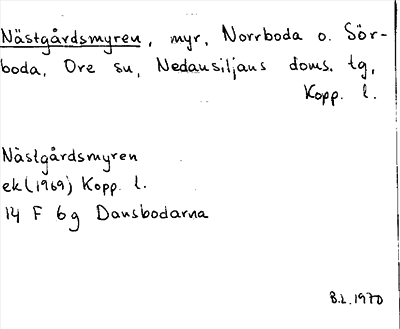 Nästgårdsmyren, myr, Norrboda o. Sör-
boda, Ore sn, Nedansiljans doms. tg,
Kopp. l.
Nästgårdsmyren
ek (1969) Kopp. l.
14 F 6g Dansbodarna
B.L. 1970